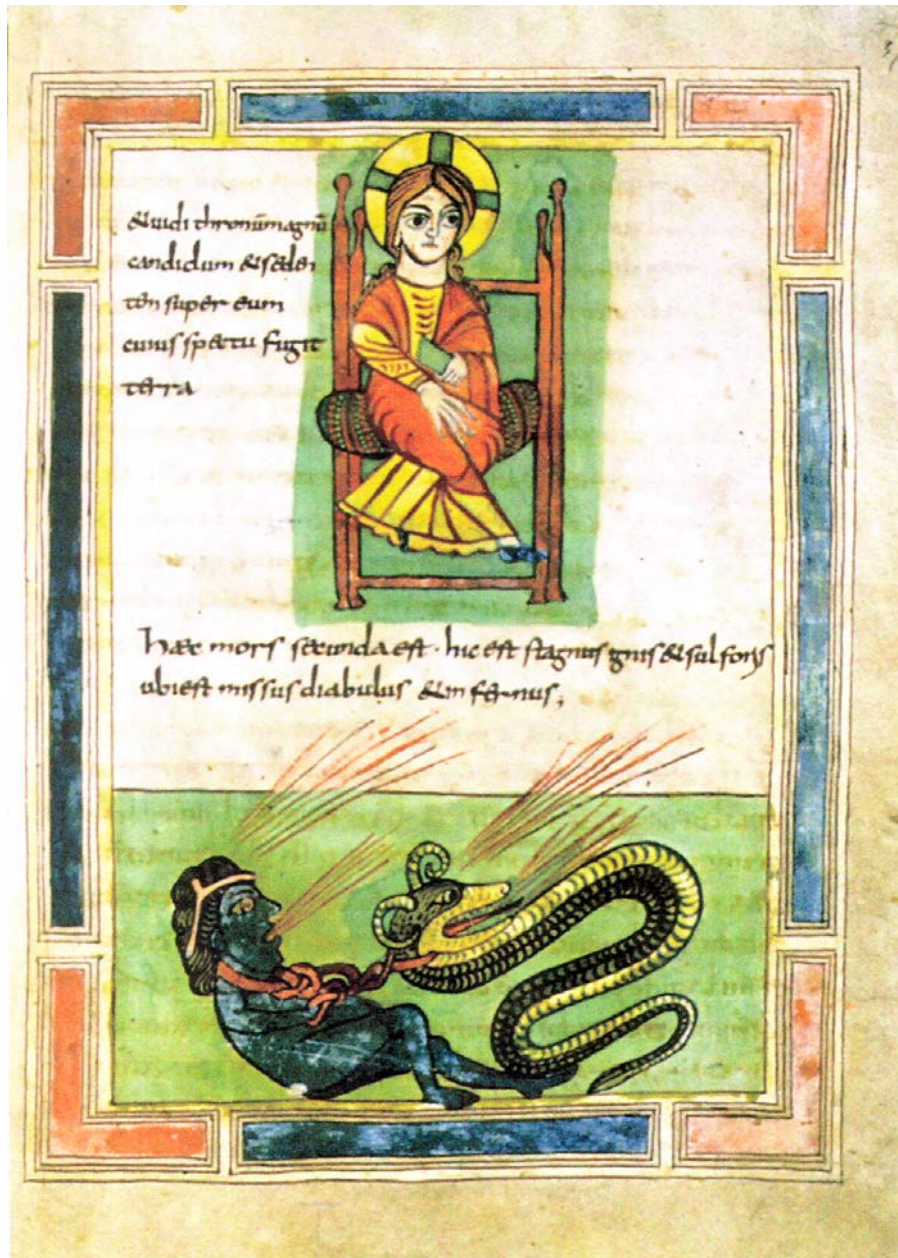 &uidi thronũ magnũ
candidum & seden
tem super eum
cuius spectu fugit
terra
haec mors secunda est · hic est stagnus ignis & sulforis
ubi est missus diabulus & infernus ;